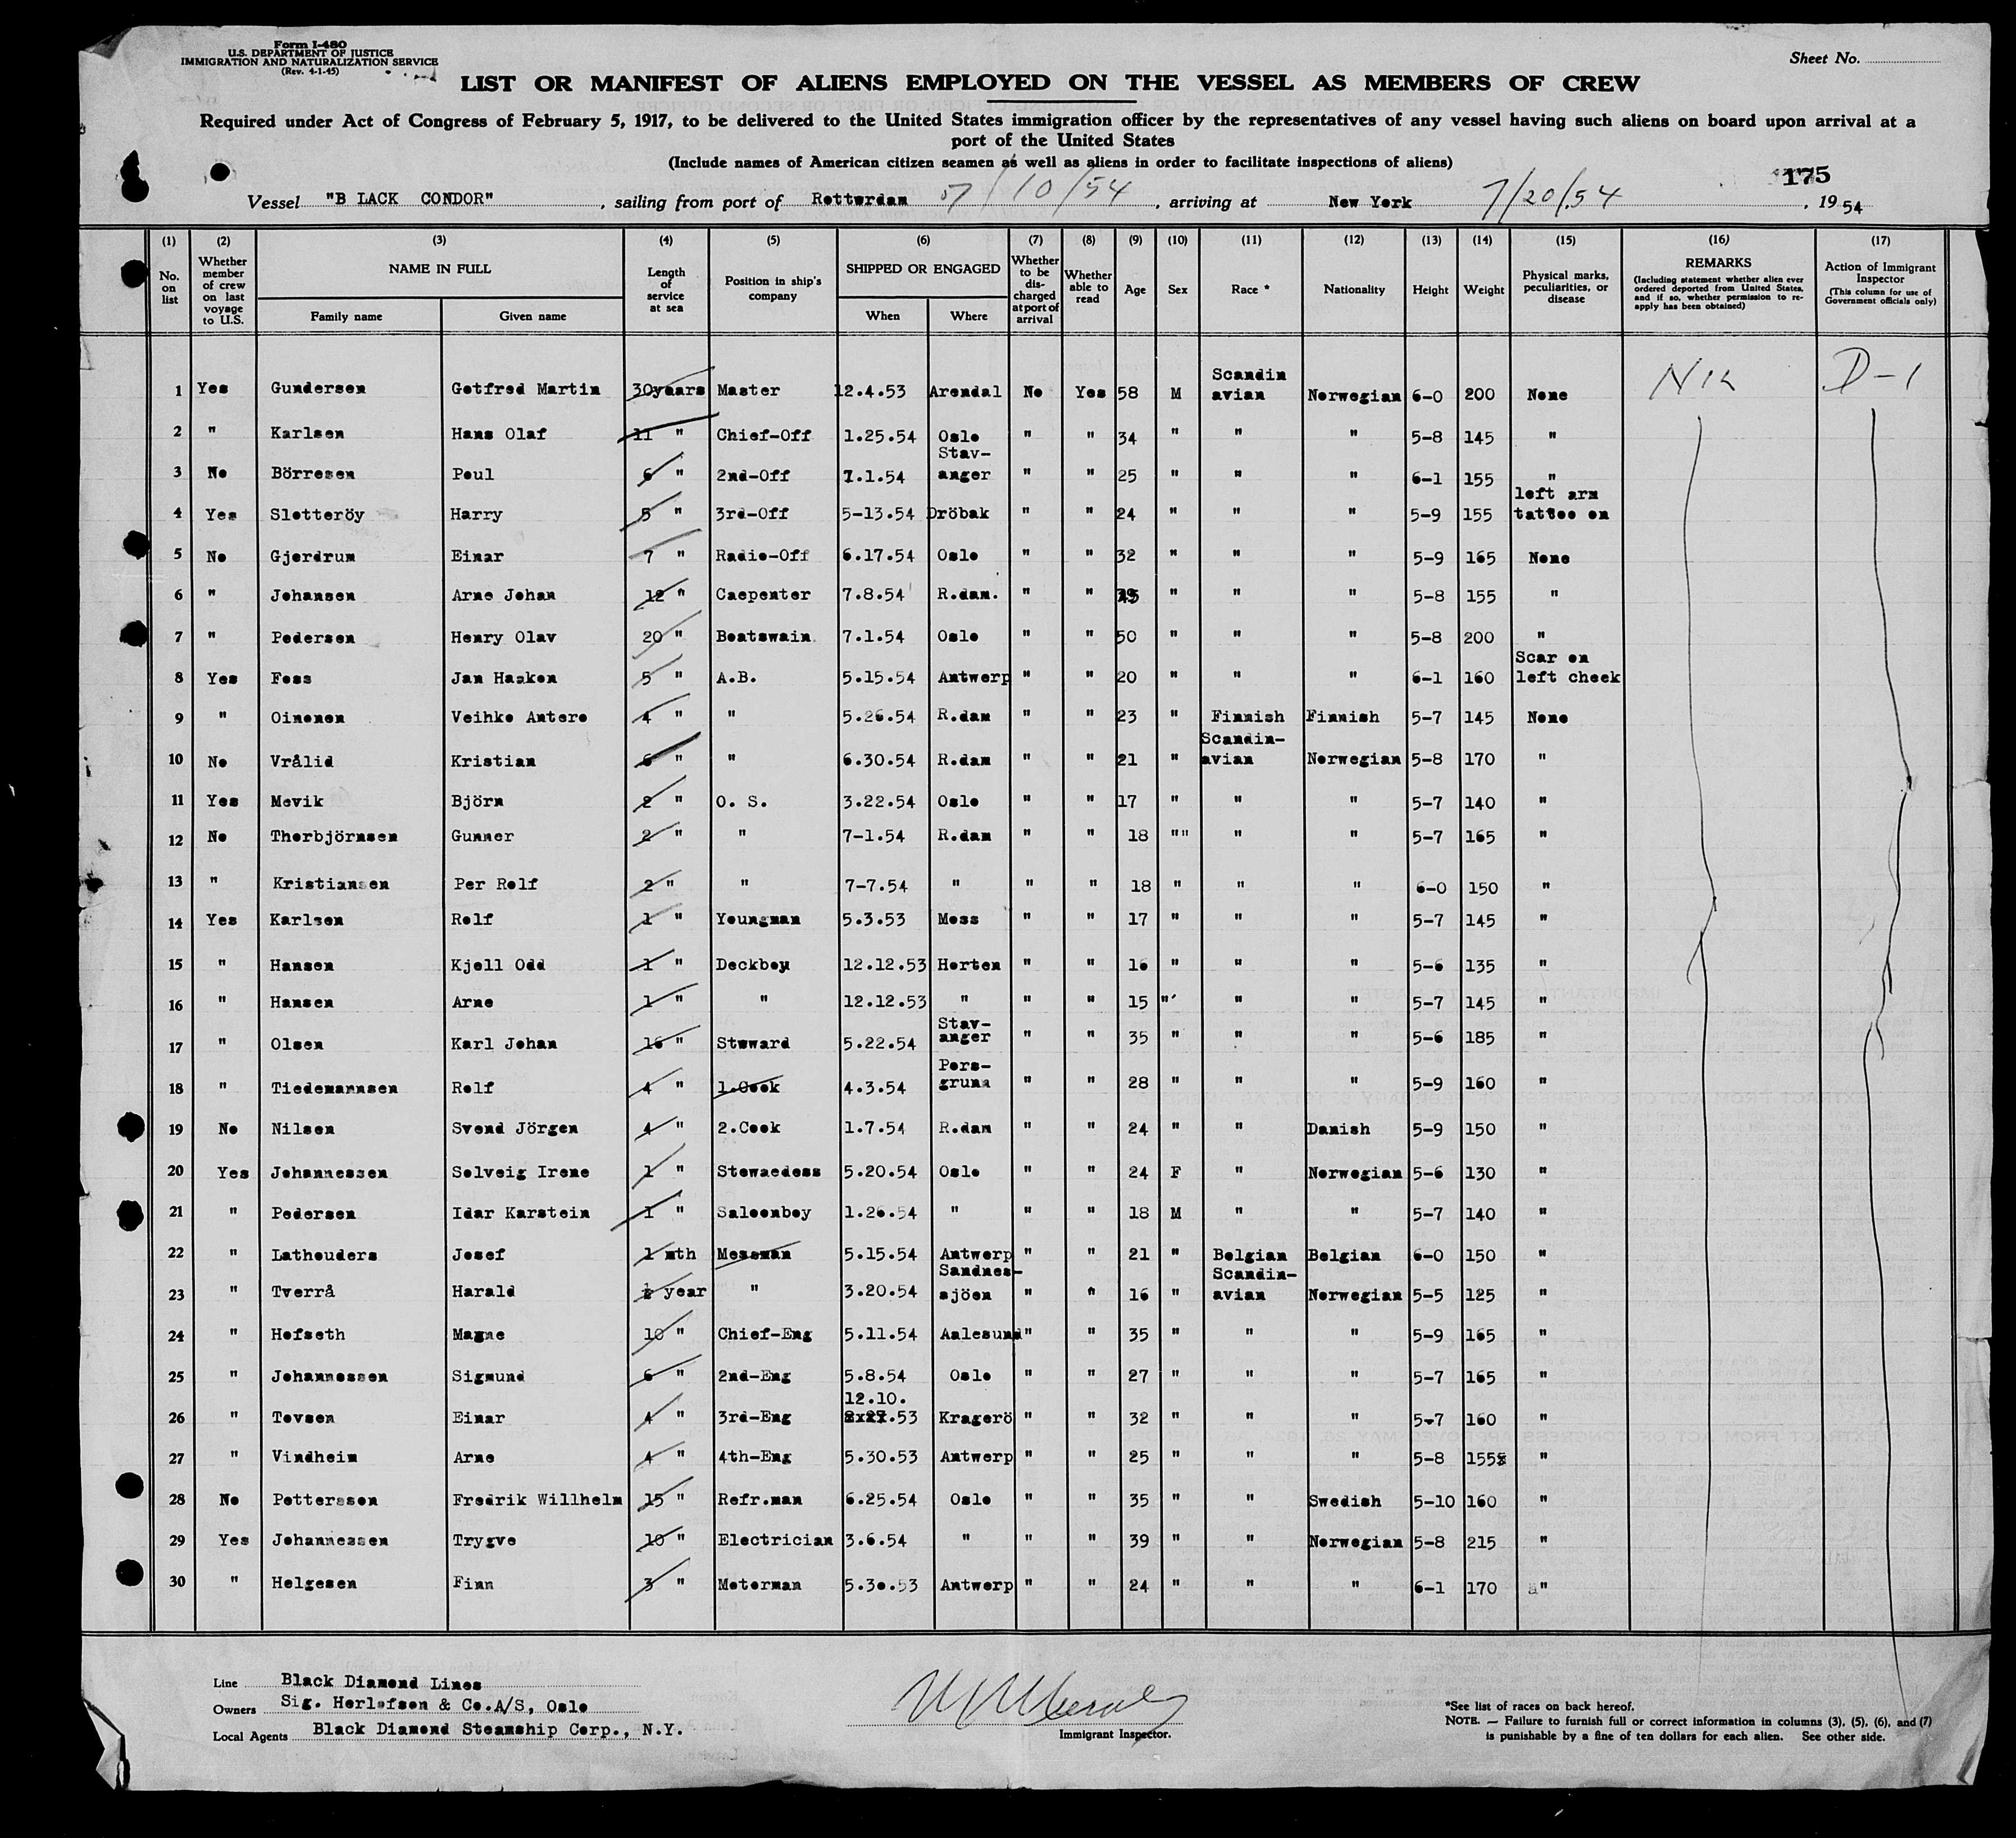 Form I-480
U.S. DEPARTMENT OF JUSTICE
IMMIGRATION AND NATURALIZATION SERVICE
(Rev. 4-1-45)
Sheet No.
LIST OR MANIFEST OF ALIENS EMPLOYED ON THE VESSEL AS MEMBERS OF CREW
Required under Act of Congress of February 5, 1917, to be delivered to the United States immigration officer by the representatives of any vessel having such aliens on board upon arrival at a
port of the United States
(Include names of American citizen seamen as well as aliens in order to facilitate inspections of aliens)
175
Vessel "B LACK CONDOR", sailing from port of Rotterdam 7/10/54, arriving at New York 7/20/54, 1954
(1) (2) (3) (4) (5) (6) (7) (8) (9) (10) (11) (12) (13) (14) (15) (16) (17)
No. on list
Whether member of crew on last voyage to U.S.
NAME IN FULL
Family name Given name
Length of service at sea
Position in ship's company
SHIPPED OR ENGAGED
When Where
Whether to be discharged at port of arrival
Whether able to read
Age
Sex
Race *
Nationality
Height
Weight
Physical marks, peculiarities, or disease
REMARKS
(Including statement whether alien ever ordered deported from United States, and if so, whether permission to re-apply has been obtained)
Action of Immigrant Inspector
(This column for use of Government officials only)
1 Yes Gundersen Gotfred Martin 30years Master 12.4.53 Arendal No Yes 58 M Scandinavian Norwegian 6-0 200 None D-1
2 " Karlsen Hans Olaf 11 " Chief-Off 1.25.54 Oslo " " 34 " " " 5-8 145 "
3 No Börresen Poul 6 " 2nd-Off 7.1.54 Stav-anger " " 25 " " " 6-1 155 "
4 Yes Sletteröy Harry 5 " 3rd-Off 5-13.54 Dröbak " " 24 " " " 5-9 155 left arm tattoo on
5 No Gjerdrum Einar 7 " Radio-Off 6.17.54 Oslo " " 32 " " " 5-9 165 None
6 " Johansen Arne Johan 12 " Caepenter 7.8.54 R.dam. " " " " " 5-8 155 "
7 " Pedersen Henry Olav 20 " Boatswain 7.1.54 Oslo " " 50 " " " 5-8 200 "
8 Yes Foss Jan Haakon 5 " A.B. 5.15.54 Antwerp " " 20 " " " 6-1 160 Scar on left cheek
9 " Oinonen Veihko Antero 4 " " 5.26.54 R.dam " " 23 " Finnish Finnish 5-7 145 None
10 No Vrålid Kristian 6 " " 6.30.54 R.dam " " 21 " Scandin-avian Norwegian 5-8 170 "
11 Yes Mevik Björn 2 " O. S. 3.22.54 Oslo " " 17 " " " 5-7 140 "
12 No Thorbjörnsen Gunner 2 " " 7-1.54 R.dam " " 18 "" " " 5-7 165 "
13 " Kristiansen Per Rolf 2 " " 7-7.54 " " " 18 " " " 6-0 150 "
14 Yes Karlsen Rolf 1 " Youngman 5.3.53 Moss " " 17 " " " 5-7 145 "
15 " Hansen Kjell Odd 1 " Deckboy 12.12.53 Horten " " 16 " " " 5-6 135 "
16 " Hansen Arne 1 " " 12.12.53 " " " 15 " " " 5-7 145 "
17 " Olsen Karl Johan 16 " Steward 5.22.54 Stav-anger " " 35 " " " 5-6 185 "
18 " Tiedemannsen Rolf 4 " 1.Cook 4.3.54 Pors-grunn " " 28 " " " 5-9 160 "
19 No Nilsen Svend Jörgen 4 " 2.Cook 1.7.54 R.dam " " 24 " " Danish 5-9 150 "
20 Yes Johannessen Solveig Irene 1 " Stewaedess 5.20.54 Oslo " " 24 F " Norwegian 5-6 130 "
21 " Pedersen Idar Karstein 1 " Saloonboy 1.26.54 " " " 18 M " " 5-7 140 "
22 " Lathouders Josef 1 mth Messman 5.15.54 Antwerp " " 21 " Belgian Belgian 6-0 150 "
23 " Tverrå Harald ½ year " 3.20.54 Sandnes-sjöen " " 16 " Scandin-avian Norwegian 5-5 125 "
24 " Hofseth Magne 10 " Chief-Eng 5.11.54 Aalesund " " 35 " " " 5-9 165 "
25 " Johannessen Sigmund 6 " 2nd-Eng 5.8.54 Oslo " " 27 " " " 5-7 165 "
26 " Tovsen Einar 4 " 3rd-Eng 12.10.53 Kragerö " " 32 " " " 5-7 160 "
27 " Vindheim Arne 4 " 4th-Eng 5.30.53 Antwerp " " 25 " " " 5-8 155 "
28 No Pettersson Fredrik Willhelm 15 " Refr.man 6.25.54 Oslo " " 35 " " Swedish 5-10 160 "
29 Yes Johannessen Trygve 10 " Electrician 3.6.54 " " " 39 " " Norwegian 5-8 215 "
30 " Helgesen Finn 3 " Motorman 5.30.53 Antwerp " " 24 " " " 6-1 170 "
Line Black Diamond Lines
Owners Sig. Herlofson & Co.A/S, Oslo
Local Agents Black Diamond Steamship Corp., N.Y.
Immigrant Inspector.
*See list of races on back hereof.
NOTE. — Failure to furnish full or correct information in columns (3), (5), (6), and (7)
is punishable by a fine of ten dollars for each alien. See other side.